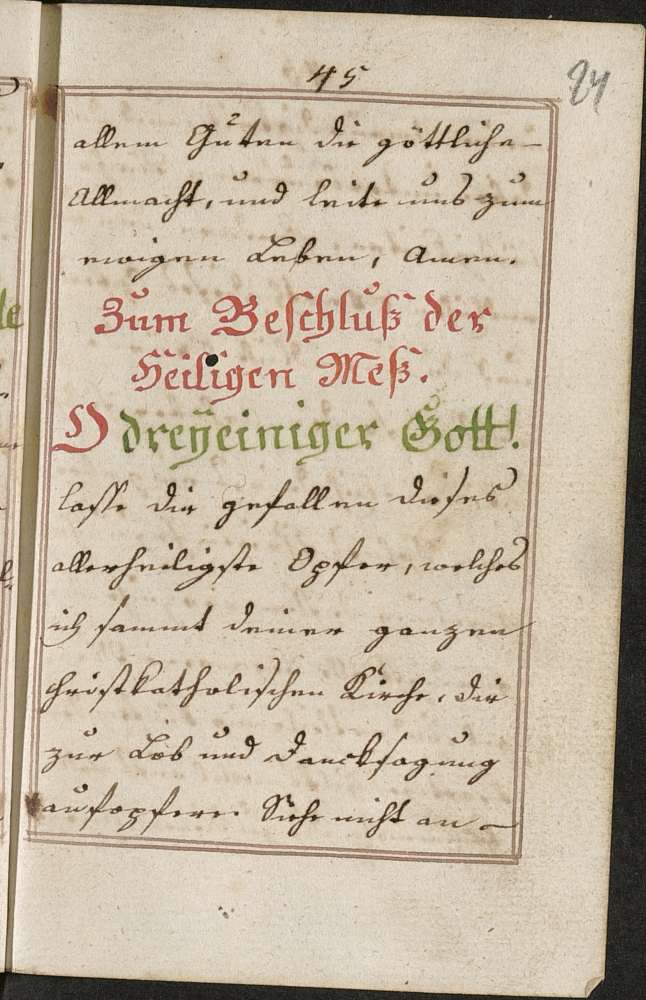 45
24
allem Guten die göttliche
Allmacht, und leite uns zum
ewigen Leben, Amen.
Zum Beschluß der
Heiligen Meß.
O dreyeiniger Gott!
lasse dir gefallen dieses
allerheiligste Opfer, welches
ich sammt deiner ganzen
christkatholischen Kirche, dir
zur Lob und Dancksagung
aufopfere. Siehe nicht an